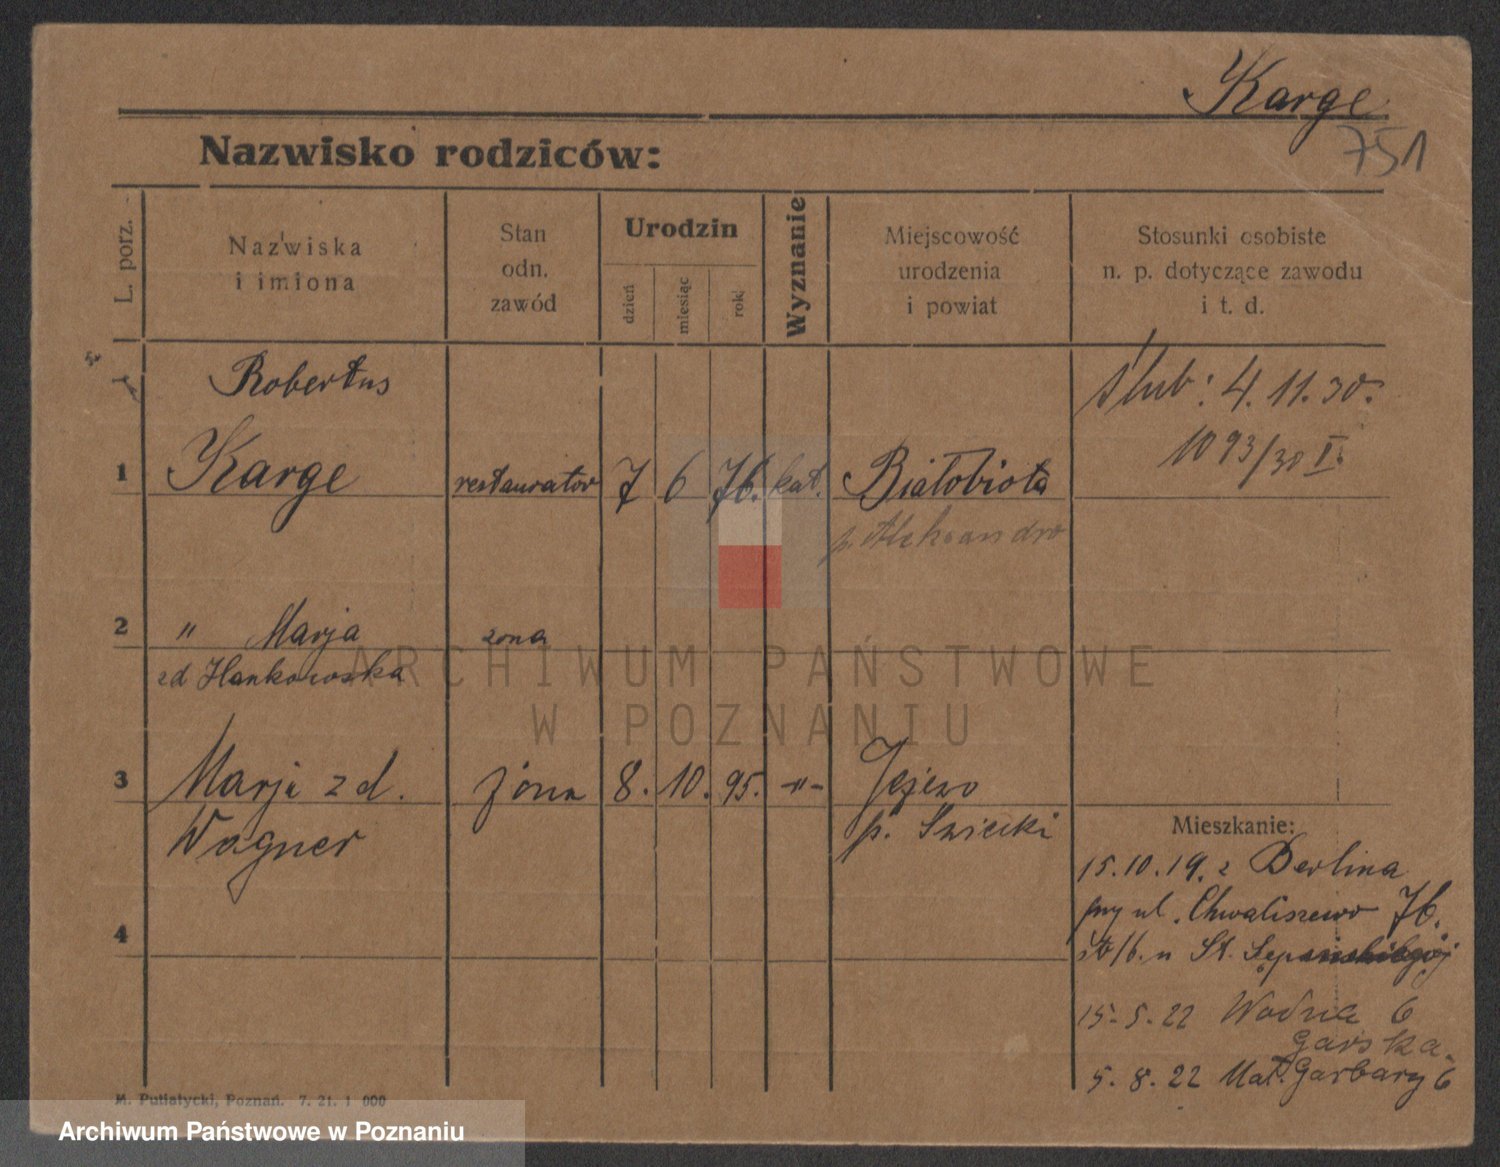 Karge
751
Nazwisko rodziców:
L. porz.
Nazwiska
i imiona
Stan
odn.
zawód
Urodzin
dzień
miesiąc
rok
Wyznanie
Miejscowość
urodzenia
i powiat
Stosunki osobiste
n. p. dotyczące zawodu
i t. d.
Robertus
ślub: 4.11.30.
1093/30 I.
1 Karge restaurator 7 6 76. kat. Białobłota
p. Aleksandro
2 " Marja żona
zd Hankowska
3 Marja z d. żona 8. 10. 95. -"- Jeżewo
Wagner p. Świecki
Mieszkanie:
15.10.19. z Berlina
przy ul. Chwaliszewo 76.
4
St.
15.5.22 Wodna 6
Garska.
5.8.22 Mał. Garbary 6
M. Putiatycki, Poznań. 7. 21. 1 000
ARCHIWUM PAŃSTWOWE
W POZNANIU
Archiwum Państwowe w Poznaniu